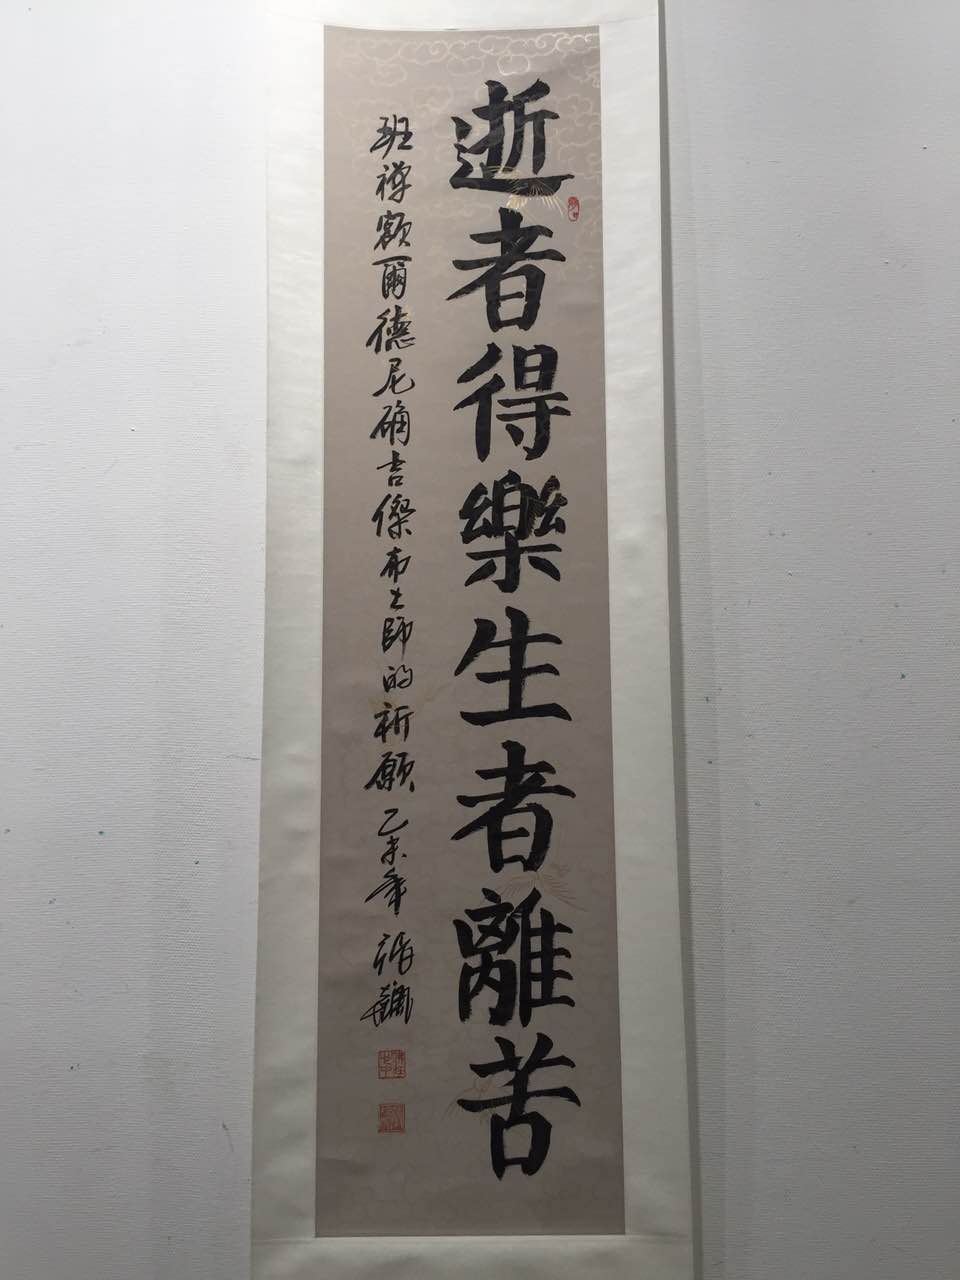 逝者得樂生者離苦
班禅額爾德尼确吉傑布上師的祈願 乙未年